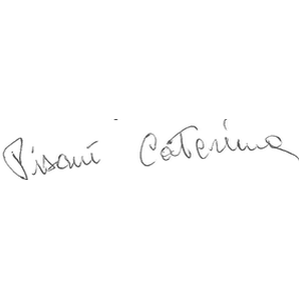 Pisani Caterina